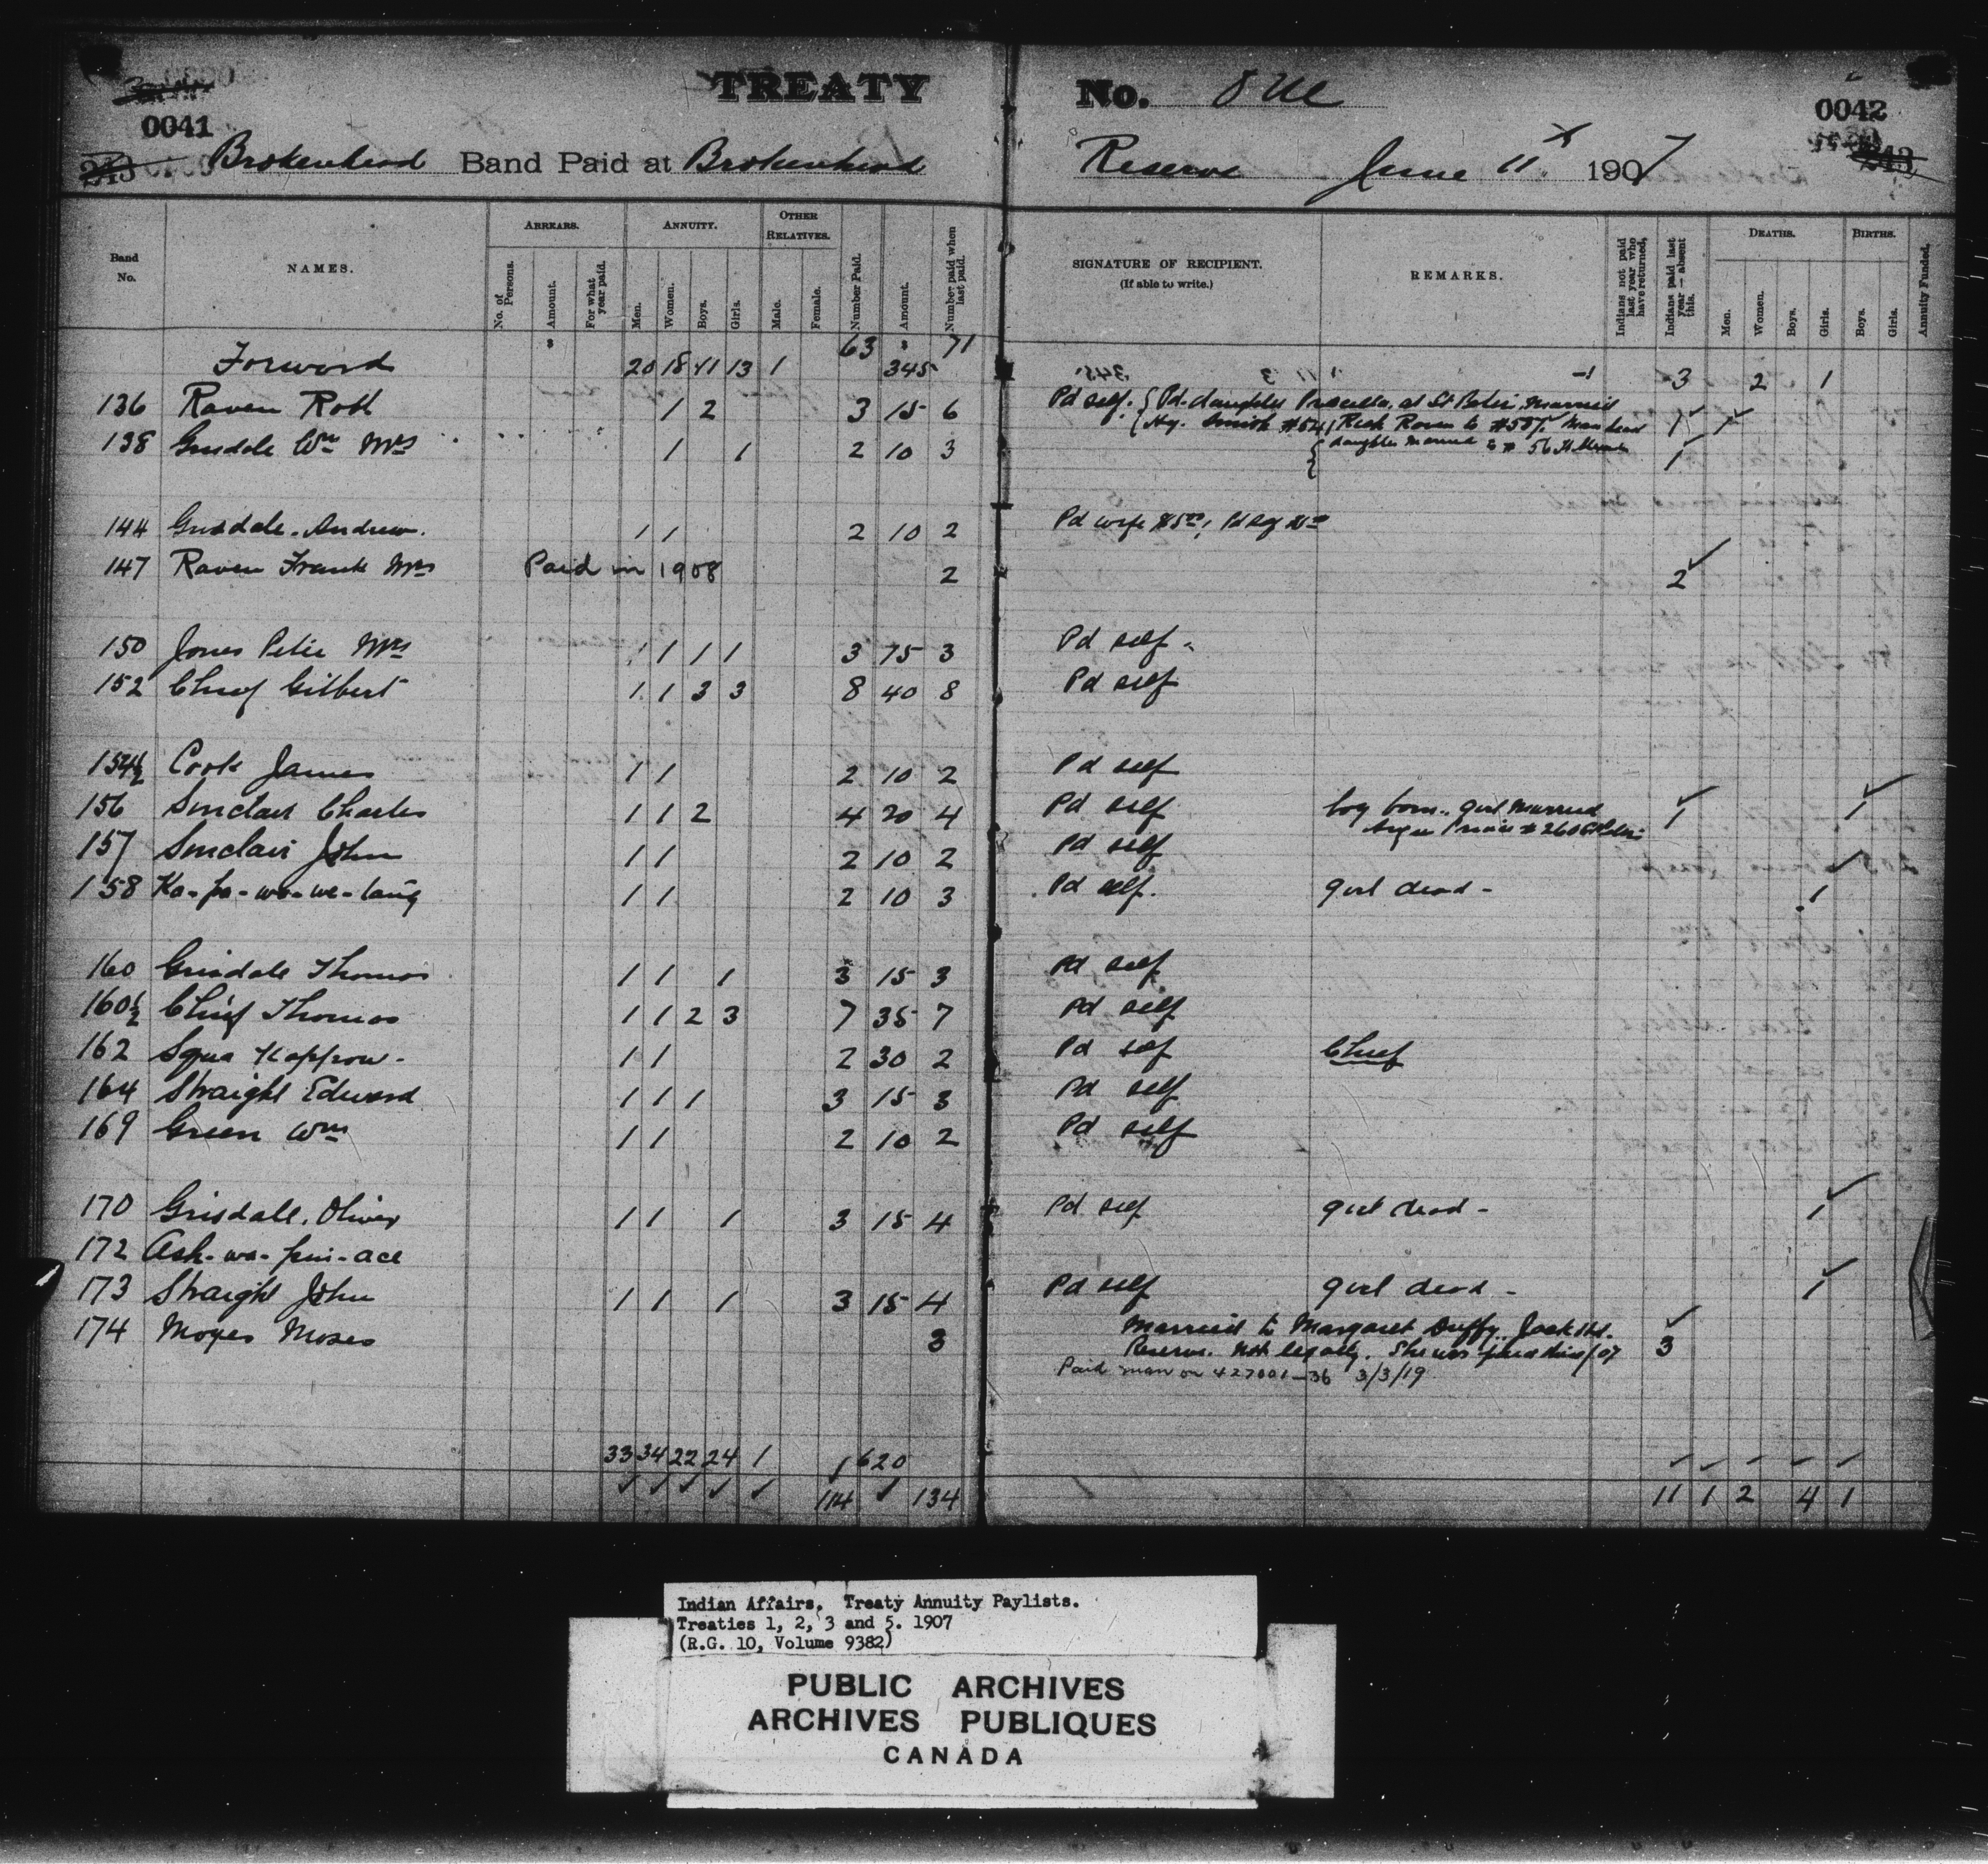 TREATY No. One
0041
0042
243
243
Brokenhead Band Paid at Brokenhead Reserve June 11 1907
Band No.
NAMES.
ARREARS.
No. of Persons.
Amount.
For what year paid.
ANNUITY.
Men.
Women.
Boys.
Girls.
OTHER RELATIVES.
Male.
Female.
Number Paid.
Amount.
Number paid when last paid.
SIGNATURE OF RECIPIENT.
(If able to write.)
REMARKS.
Indians not paid last year who have returned,
Indians paid last year—absent this.
DEATHS.
Men.
Women.
Boys.
Girls.
BIRTHS.
Boys.
Girls.
Annuity Funded.
Forward 20 18 11 13 1 63 345 71 1 3 2 1
136 Raven Robt 1 2 3 15 6 Pd self. Pd. daughter at St Peter married 1 1
Hy. Smith #541 Raven to #587 Man dead
138 Grisdale Wm Mrs 1 1 2 10 3 daughter married to # 56 1
144 Grisdale. Andrew. 1 1 2 10 2 Pd wife $5.00
147 Raven Frank Mrs Paid in 1908 2 2
150 Jones Peter Mrs 1 1 1 3 15 3 Pd self
152 Chief Gilbert 1 1 3 3 8 40 8 Pd self
154½ Cook James 1 1 2 10 2 Pd self
156 Sinclair Charles 1 1 2 4 20 4 Pd self boy born. girl married 1 1
157 Sinclair John 1 1 2 10 2 Pd self
158 Ka-pa-wa-we-tang 1 1 2 10 3 Pd self. girl dead - 1
160 Grisdale Thomas 1 1 1 3 15 3 Pd self
160½ Chief Thomas 1 1 2 3 7 35 7 Pd self
162 Squa Kappow - 1 1 2 30 2 Pd self Chief
164 Straight Edward 1 1 1 3 15 3 Pd self
169 Green Wm 1 1 2 10 2 Pd self
170 Grisdale. Oliver 1 1 1 3 15 4 Pd self girl dead - 1
172 Ash-wa-pun-ace
173 Straight John 1 1 1 3 15 4 Pd self girl dead - 1
174 Moyes Moses 3 Married to Margaret Duffy. Jack Hd. 3
Reserve. Not legally. She was paid this /07
Paid man on 427001-36 3/3/19
33 34 22 24 1 620
114 134 11 1 2 4 1
Indian Affairs. Treaty Annuity Paylists.
Treaties 1, 2, 3 and 5. 1907
(R.G. 10, Volume 9382)
PUBLIC ARCHIVES
ARCHIVES PUBLIQUES
CANADA